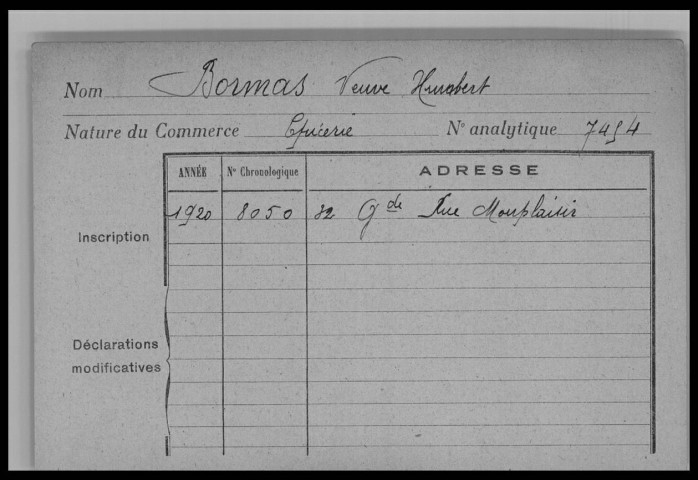 Nom Bormas Veuve Humbert
Nature du Commerce Epicerie N° analytique 7454
ANNÉE N° Chronologique ADRESSE
1920 8050 32 Gde Rue Monplaisir
Inscription
Déclarations
modificatives